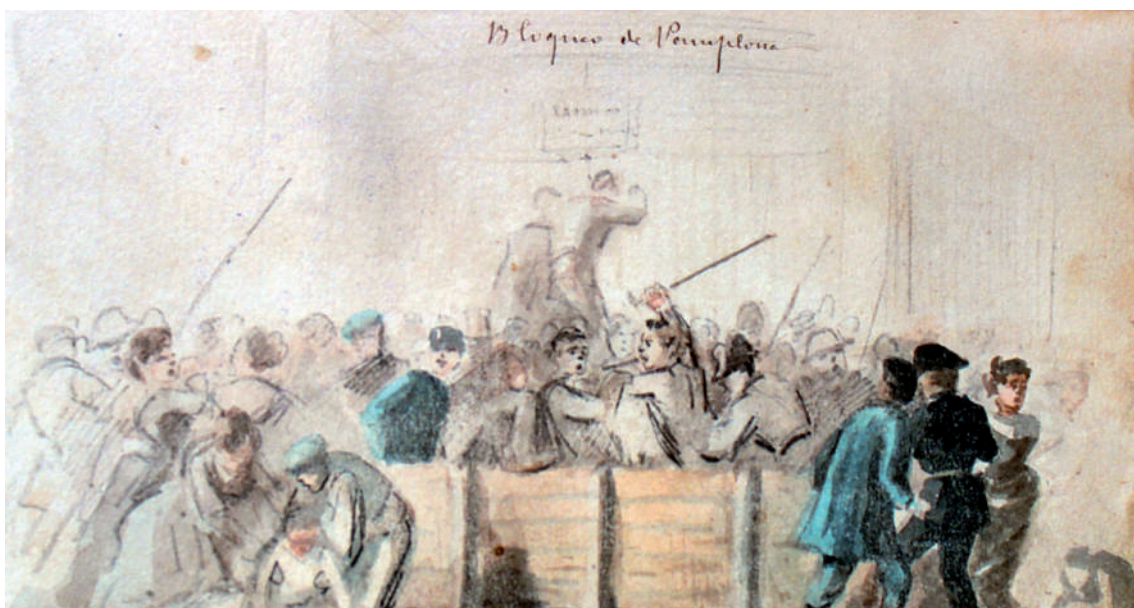 Bloqueo de Pamplona